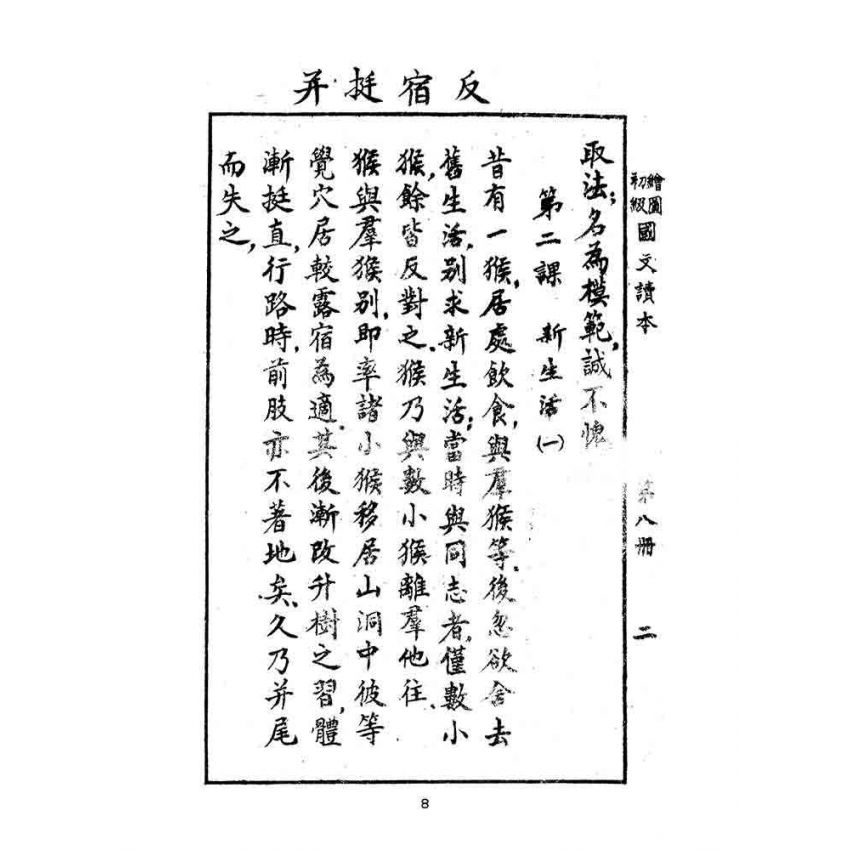 反宿挺并
繪圖初級國文讀本 第八冊 二
取法；名為模範，誠不愧
第二課 新生活（一）
昔有一猴，居處飲食，與羣猴等．後忽欲舍去
舊生活，別求新生活；當時與同志者，僅數小
猴，餘皆反對之．猴乃與數小猴離羣他往．
猴與羣猴別，即率諸小猴移居山洞中彼等
覺穴居較露宿為適．其後漸改升樹之習，體
漸挺直，行路時，前肢亦不著地矣．久乃并尾
而失之，
8